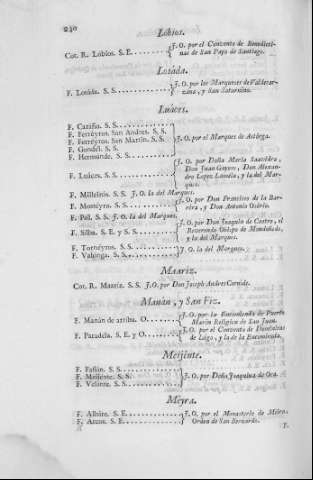 240
Lobios.
Cot. R. Lobios. S. E. J. O. por el Convento de Benedicti-
nas de San Payo de Santiago.
Losáda.
F. Losáda. S. S. J. O. por los Marqueses de Valdecar-
zana, y San Saturnino.
Luáces.
F. Cariño. S. S.
F. Ferréyros. San Andres. S. S.
F. Ferréyros. San Martin. S. S. J. O. por el Marques de Astorga.
F. Gondél. S. S.
F. Hermunde. S. S.
F. Luáces. S. S. J. O. por Doña Maria Saavédra,
Don Juan Gayoso, Don Alexan-
dro Lopez Losáda, y la del Mar-
ques.
F. Milleirós. S. S. J. O. la del Marques.
F. Montéyro. S. S. J. O. por Don Francisco de la Bar-
réra, y Don Antonio Osório.
F. Pól. S. S. J. O. la del Marques.
F. Silba. S. E. y S. S. J. O. por Don Joaquin de Castro, el
Reverendo Obispo de Mondoñedo,
y la del Marques.
F. Torneyros. S. S.
F. Valonga. S. S. J. O. la del Marques.
Maariz.
Cot. R. Maariz. S. S. J. O. por Don Joseph Andres Cornide.
Manán, y San Fiz.
F. Manán de arriba. O. J. O. por la Encomienda de Puerto
Marin Religion de San Juan.
F. Paradela. S. E. y O. J. O. por el Convento de Dominicos
de Lugo, y la de la Encomienda.
Meijinte.
F. Fafián. S. S.
F. Meijente. S. S. J. O. por Doña Joaquina de Oca.
F. Veiante. S. S.
Meyra.
F. Albáre. S. E. J. O. por el Monasterio de Méyra
F. Azum. S. E. Orden de San Bernardo.
F.